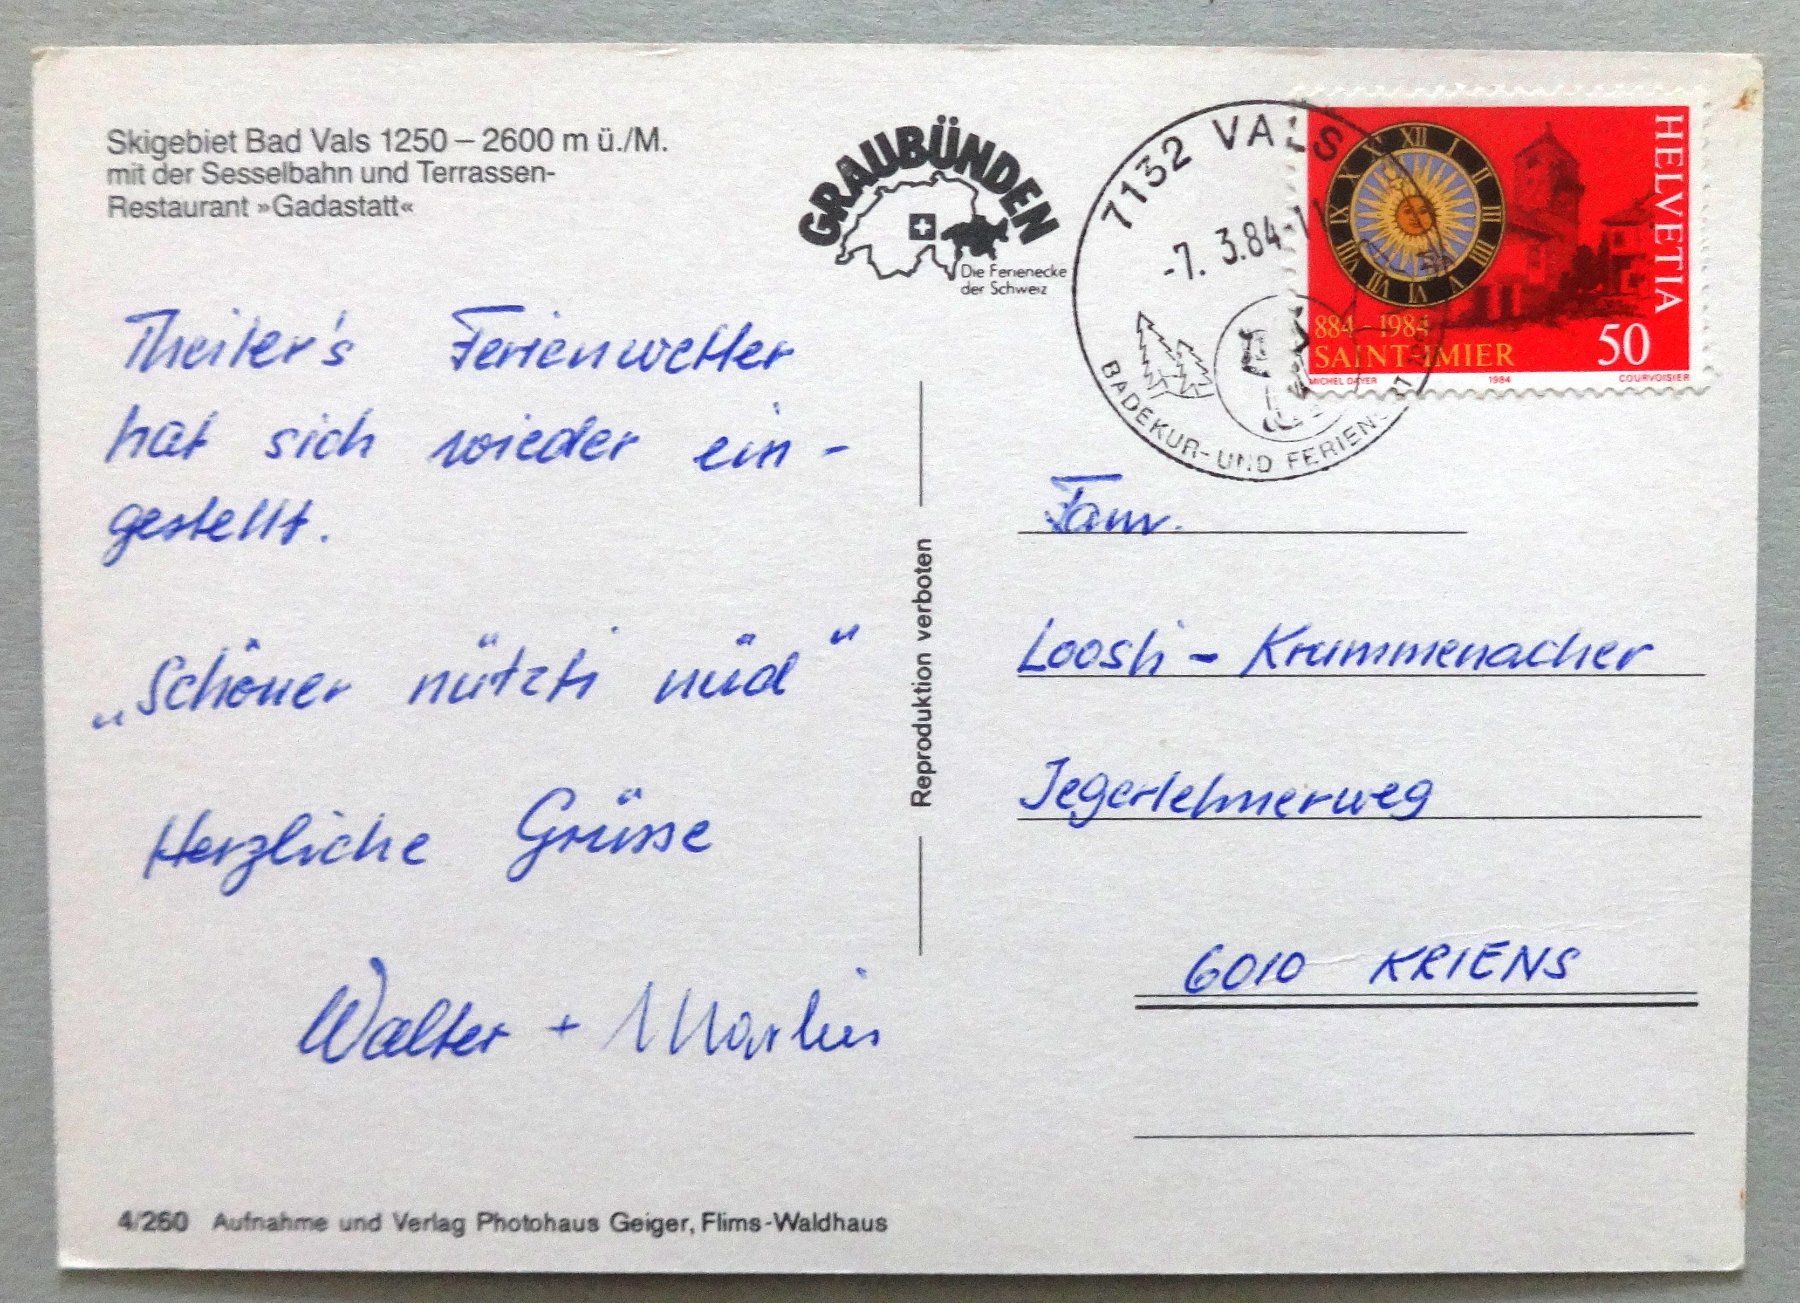 Skigebiet Bad Vals 1250 – 2600 m ü./M.
mit der Sesselbahn und Terrassen-
Restaurant »Gadastatt«
GRAUBÜNDEN
Die Ferienecke
der Schweiz
7132 VALS
-7. 3.84-
BADEKUR- UND FERIENORT
HELVETIA
884–1984
SAINT-IMIER
50
MICHEL DAYER 1984 COURVOISIER
Theiler's Ferienwetter
hat sich wieder ein-
gestellt.
„Schöner nützti nüd"
Herzliche Grüsse
Walter + Marlies
Reproduktion verboten
Fam.
Loosli - Krummenacher
Jegerlehnerweg
6010 KRIENS
4/260 Aufnahme und Verlag Photohaus Geiger, Flims-Waldhaus